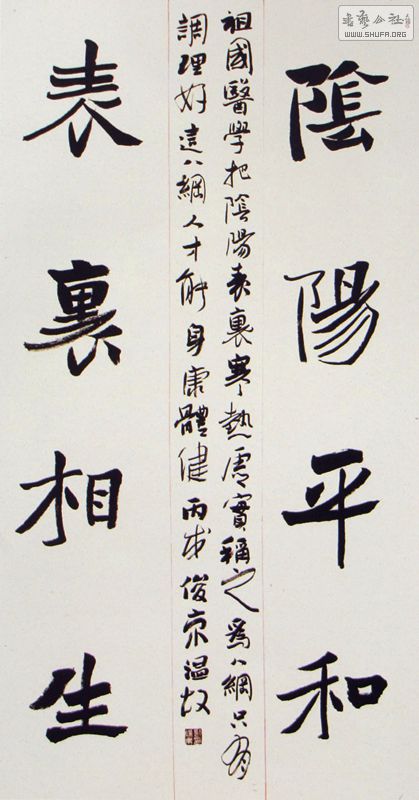 書藝公社
WWW.SHUFA.ORG
陰陽平和
祖國醫學把陰陽表裏寒熱虛實稱之為八綱只有
調理好這八綱人才能身康體健丙戌俊京溫故
表裏相生